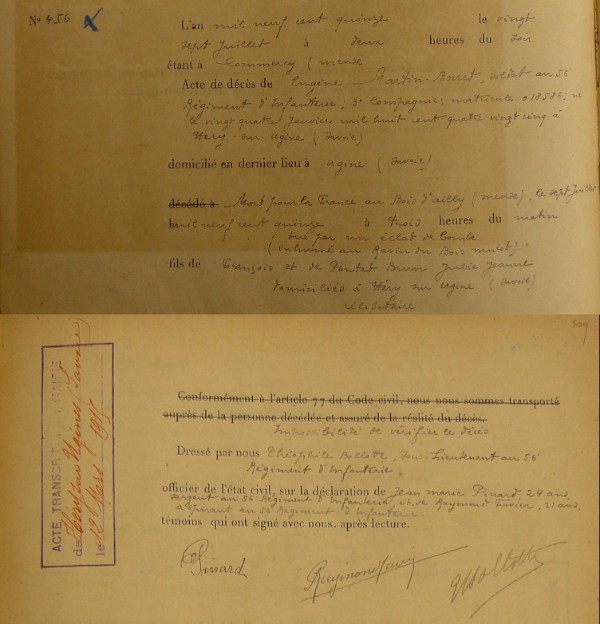 No 456
L'an mil neuf cent quinze le vingt
sept Juillet à deux heures du soir
étant à Commercy (meuse
Acte de décès de Eugène Martin-Borret, soldat au 56
Régiment d'Infanterie; 3e Compagnie; matricule 012586, né
le vingt quatre Janvier mil huit cent quatre vingt cinq à
Héry-sur-Ugine (Savoie)
domicilié en dernier lieu à Ugine (Savoie)
décédé à Mort pour la France au Bois d'ailly (meuse), le sept Juillet
mil neuf cent quinze à trois heures du matin
tué par un éclat de bombe
(inhumé au Ravin du Bois mulot)
fils de François et de Brun Julie Jeanne
domiciliés à Héry sur Ugine (Savoie)
célibataire
Conformément à l'article 77 du Code civil, nous nous sommes transporté
auprès de la personne décédée et assuré de la réalité du décès.
Impossibilité de vérifier le décès
Dressé par nous Théophile Bollotte, Sous-Lieutenant au 56
Régiment d'Infanterie,
officier de l'état civil, sur la déclaration de Jean marie Pinard, 24 ans,
sergent au 56e Régiment d'Infanterie, et de Raymond Xavier, 21 ans,
aspirant au 56 Régiment d'Infanterie.
témoins qui ont signé avec nous, après lecture.
Pinard
Raymond Xavier
Bollotte
ACTE TRANSCRIT
de Héry sur Ugines, Savoie
le 12 Mars 1915